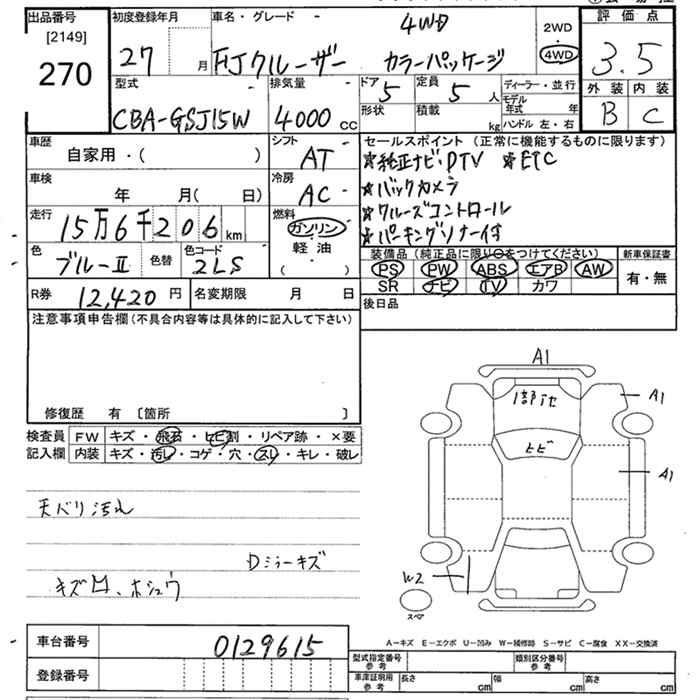 出品番号
[2149]
270
初度登録年月
27 月
車名・グレード
4WD
FJクルーザー カラーパッケージ
2WD
4WD
評価点
3.5
外装 内装
B C
型式
CBA-GSJ15W
排気量
4000 cc
ドア
5
定員
5 人
形状
積載
kg
ディーラー・並行
モデル年式 年
ハンドル 左・右
車歴
自家用・( )
シフト
AT
車検
年 月( 日)
冷房
AC
走行
15万6千206 km
燃料
ガソリン
軽油
( )
色
ブルーII
色替
色コード
2LS
R券
12,420 円
名変期限 月 日
セールスポイント (正常に機能するものに限ります)
★純正ナビ DTV ★ETC
★バックカメラ
★クルーズコントロール
★パーキングソナー付
装備品 (純正品に限り○をつけてください)
PS PW ABS エアB AW
SR ナビ TV カワ
新車保証書
有・無
後日品
注意事項申告欄 (不具合内容等は具体的に記入して下さい)
修復歴 有 [箇所 ]
検査員記入欄
FW キズ・飛石・ヒビ割・リペア跡・×要
内装 キズ・汚レ・コゲ・穴・スレ・キレ・破レ
天バリ汚れ
Dミラーキズ
キズ凹、ホシュウ
A1
A1
ヒビ
A1
W2
スペア
A−キズ E−エクボ U−凹み W−補修跡 S−サビ C−腐食 XX−交換済
車台番号
0129615
登録番号
型式指定番号
参考
類別区分番号
参考
車庫証明用
参考
長さ cm
幅 cm
高さ cm